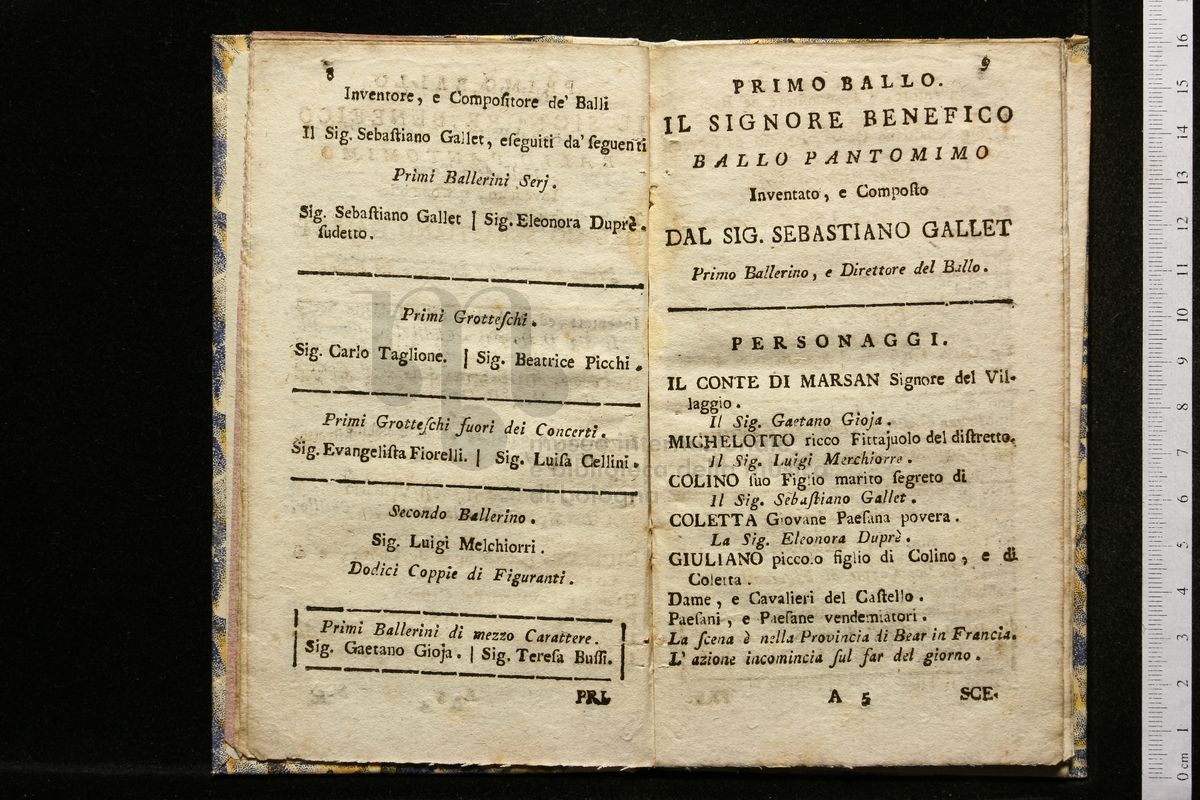 8
Inventore, e Compoſitore de' Balli
Il Sig. Sebaſtiano Gallet, eſeguiti da' ſeguenti
Primi Ballerini Serj.
Sig. Sebaſtiano Gallet | Sig. Eleonora Duprè.
ſudetto.
Primi Grotteſchi.
Sig. Carlo Taglione. | Sig. Beatrice Picchi.
Primi Grotteſchi fuori dei Concerti.
Sig. Evangeliſta Fiorelli. | Sig. Luiſa Cellini.
Secondo Ballerino.
Sig. Luigi Melchiorri.
Dodici Coppie di Figuranti.
Primi Ballerini di mezzo Carattere.
Sig. Gaetano Gioja. | Sig. Tereſa Buſſi.
PRI-
9
PRIMO BALLO.
IL SIGNORE BENEFICO
BALLO PANTOMIMO
Inventato, e Compoſto
DAL SIG. SEBASTIANO GALLET
Primo Ballerino, e Direttore del Ballo.
PERSONAGGI.
IL CONTE DI MARSAN Signore del Vil-
laggio.
Il Sig. Gaetano Gioja.
MICHELOTTO ricco Fittajuolo del diſtretto.
Il Sig. Luigi Merchiorre.
COLINO ſuo Figlio marito ſegreto di
Il Sig. Sebaſtiano Gallet.
COLETTA Giovane Paeſana povera.
La Sig. Eleonora Duprè.
GIULIANO piccolo figlio di Colino, e di
Coletta.
Dame, e Cavalieri del Caſtello.
Paeſani, e Paeſane vendemiatori.
La ſcena è nella Provincia di Bear in Francia.
L' azione incomincia ſul far del giorno.
A 5 SCE-
0 cm 1 2 3 4 5 6 7 8 9 10 11 12 13 14 15 16